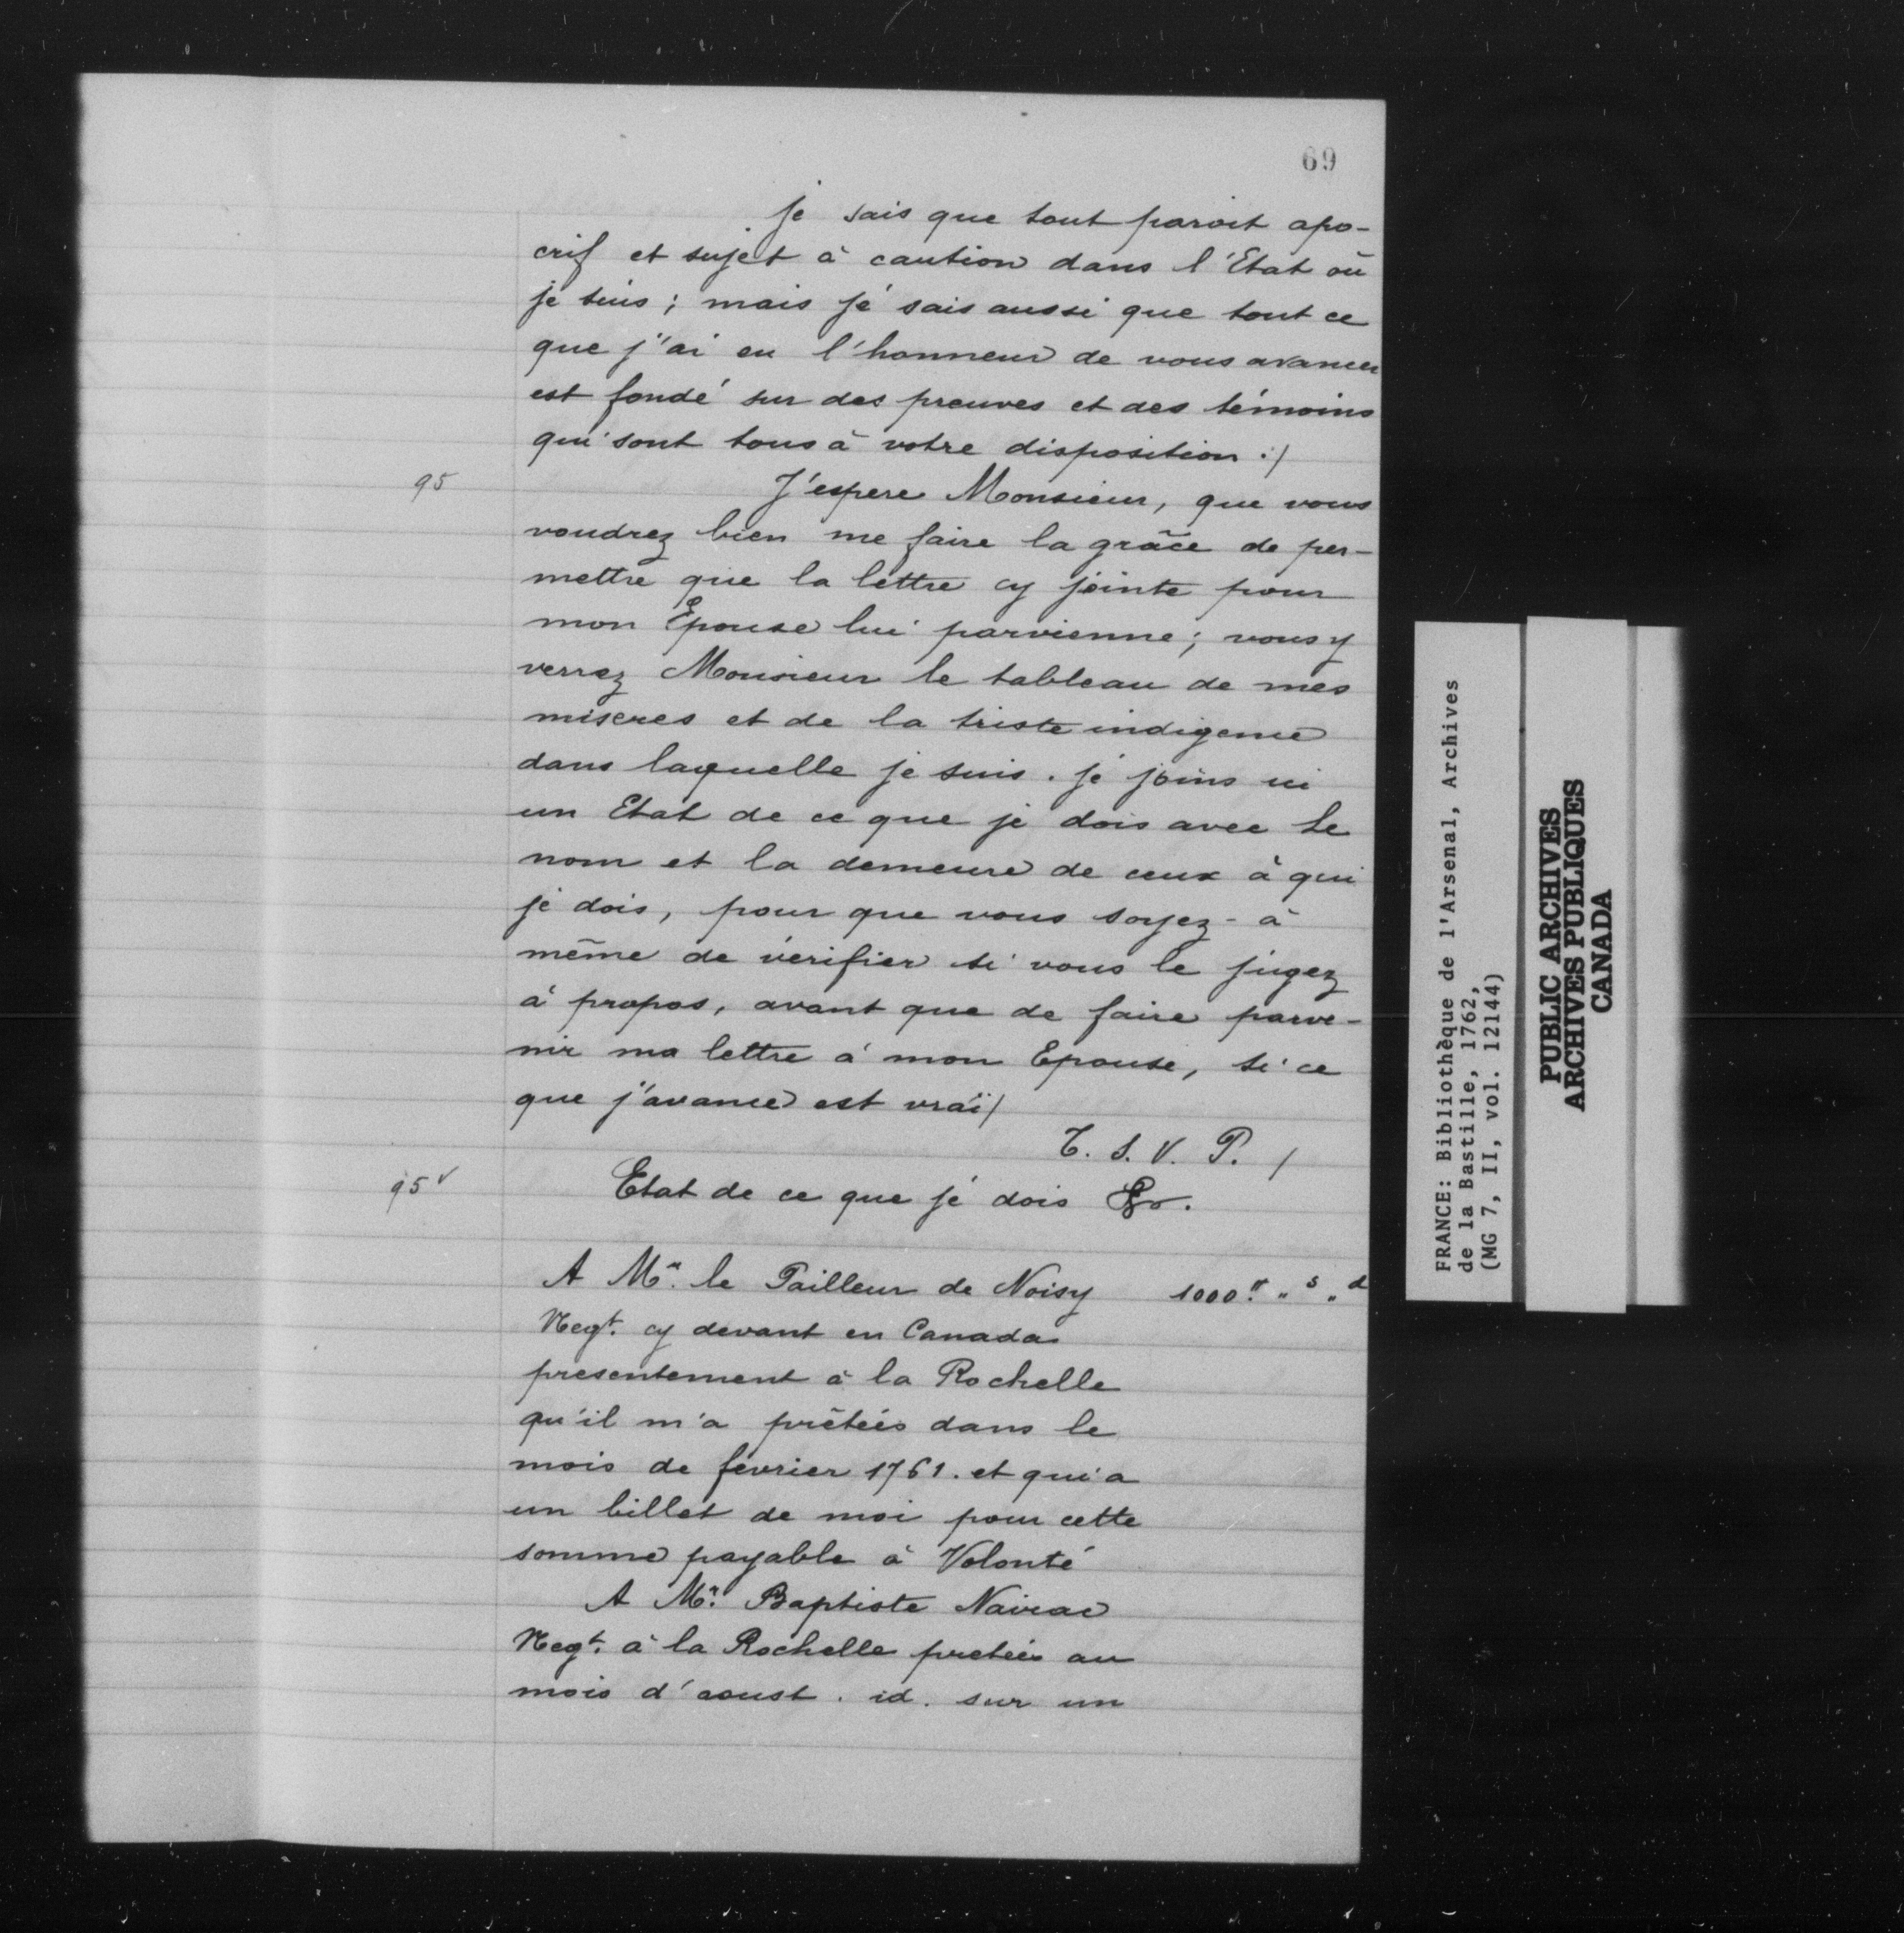 69
je sais que tout paroit apo-
crif et sujet à caution dans l'Etat où
je suis ; mais jé sais aussi que tout ce
que j'ai eu l'honneur de vous avancer
est fondé sur des preuves et des témoins
qui sont tous à votre disposition :/
95
J'espere Monsieur, que vous
voudrez bien me faire la grâce de per-
mettre que la lettre cy jointe pour
mon Epouse lui parvienne ; vous y
verrez Monsieur le tableau de mes
miseres et de la triste indigence
dans laquelle je suis . jé joins ici
un Etat de ce que je dois avec le
nom et la demeure de ceux à qui
je dois, pour que vous soyez - à
même de vérifier si vous le jugez
à propos, avant que de faire parve-
nir ma lettre à mon Epouse, si ce
que j'avance est vraï/
T. S. V. P. /
95v
Etat de ce que jé dois &r.
A Mr. le Tailleur de Noisy 1000.tt " s " d
Negt. cy devant en Canada
presentement à la Rochelle
qu'il m'a prêtées dans le
mois de février 1761. et qui a
un billet de moi pour cette
somme payable à Volonté
A Mr. Baptiste Nairac
Negt. à la Rochelle pretées au
mois d'aoust . id. sur un
FRANCE: Bibliothèque de l'Arsenal, Archives
de la Bastille, 1762,
(MG 7, II, vol. 12144)
PUBLIC ARCHIVES
ARCHIVES PUBLIQUES
CANADA